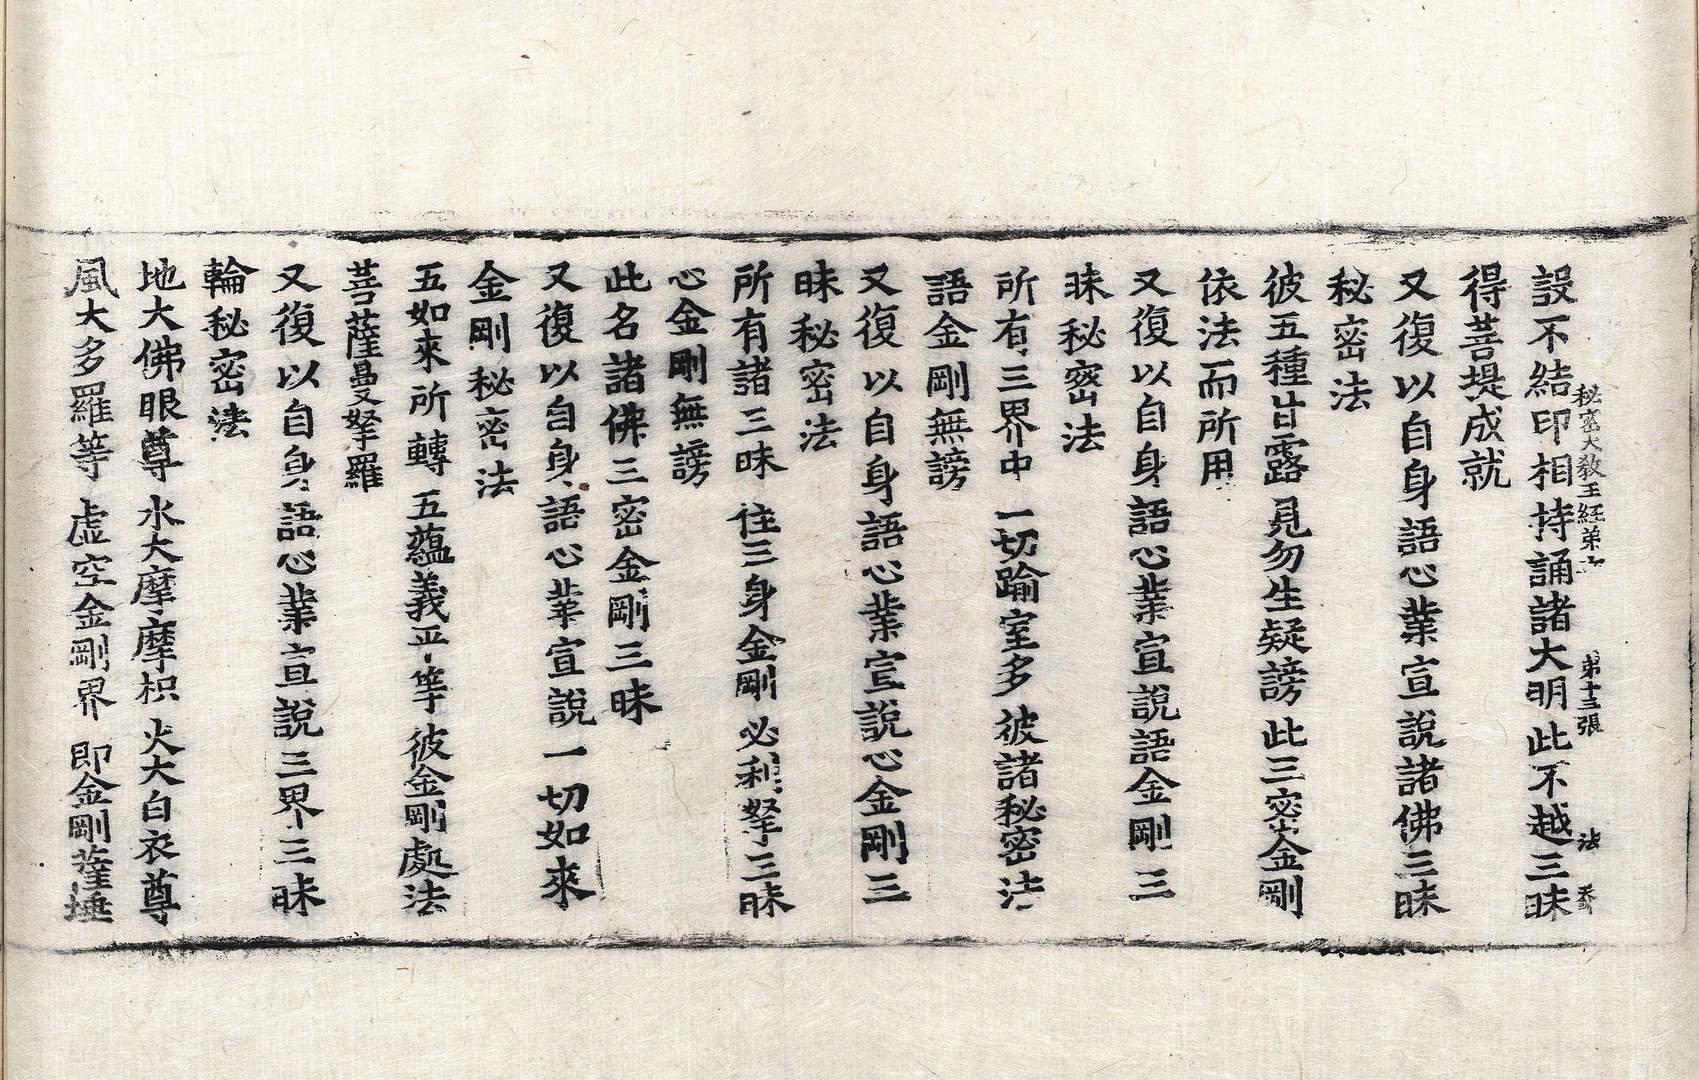 秘密大教王經第六 第十三張 法 天
設不結印相持誦諸大明此不越三昧
得菩提成就
又復以自身語心業宣說諸佛三昧
秘密法
彼五種甘露見勿生疑謗此三密金剛
依法而所用
又復以自身語心業宣說語金剛三
昧秘密法
所有三界中一切踰室多彼諸秘密法
語金剛無謗
又復以自身語心業宣說心金剛三
昧秘密法
所有諸三昧往三身金剛必利拏三昧
心金剛無謗
此名諸佛三密金剛三昧
又復以自身語心業宣說一切如來
金剛秘密法
五如來所轉五蘊義平等彼金剛處法
菩薩曼拏羅
又復以自身語心業宣說三界三昧
輪秘密法
地大佛眼尊水大摩摩枳火大白衣尊
風大多羅等虛空金剛界即金剛薩埵